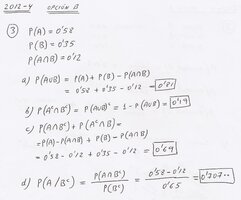 2012-4 OPCIÓN B
③ P(A) = 0'58
P(B) = 0'35
P(A∩B) = 0'12
a) P(A∪B) = P(A) + P(B) - P(A∩B)
= 0'58 + 0'35 - 0'12 = 0'81
b) P(Aᶜ∩Bᶜ) = P(A∪B)ᶜ = 1 - P(A∪B) = 0'19
c) P(A∩Bᶜ) + P(Aᶜ∩B) =
= P(A) - P(A∩B) + P(B) - P(A∩B)
= 0'58 - 0'12 + 0'35 - 0'12 = 0'69
d) P(A/Bᶜ) = P(A∩Bᶜ) / P(Bᶜ) = 0'58 - 0'12 / 0'65 = 0'707··